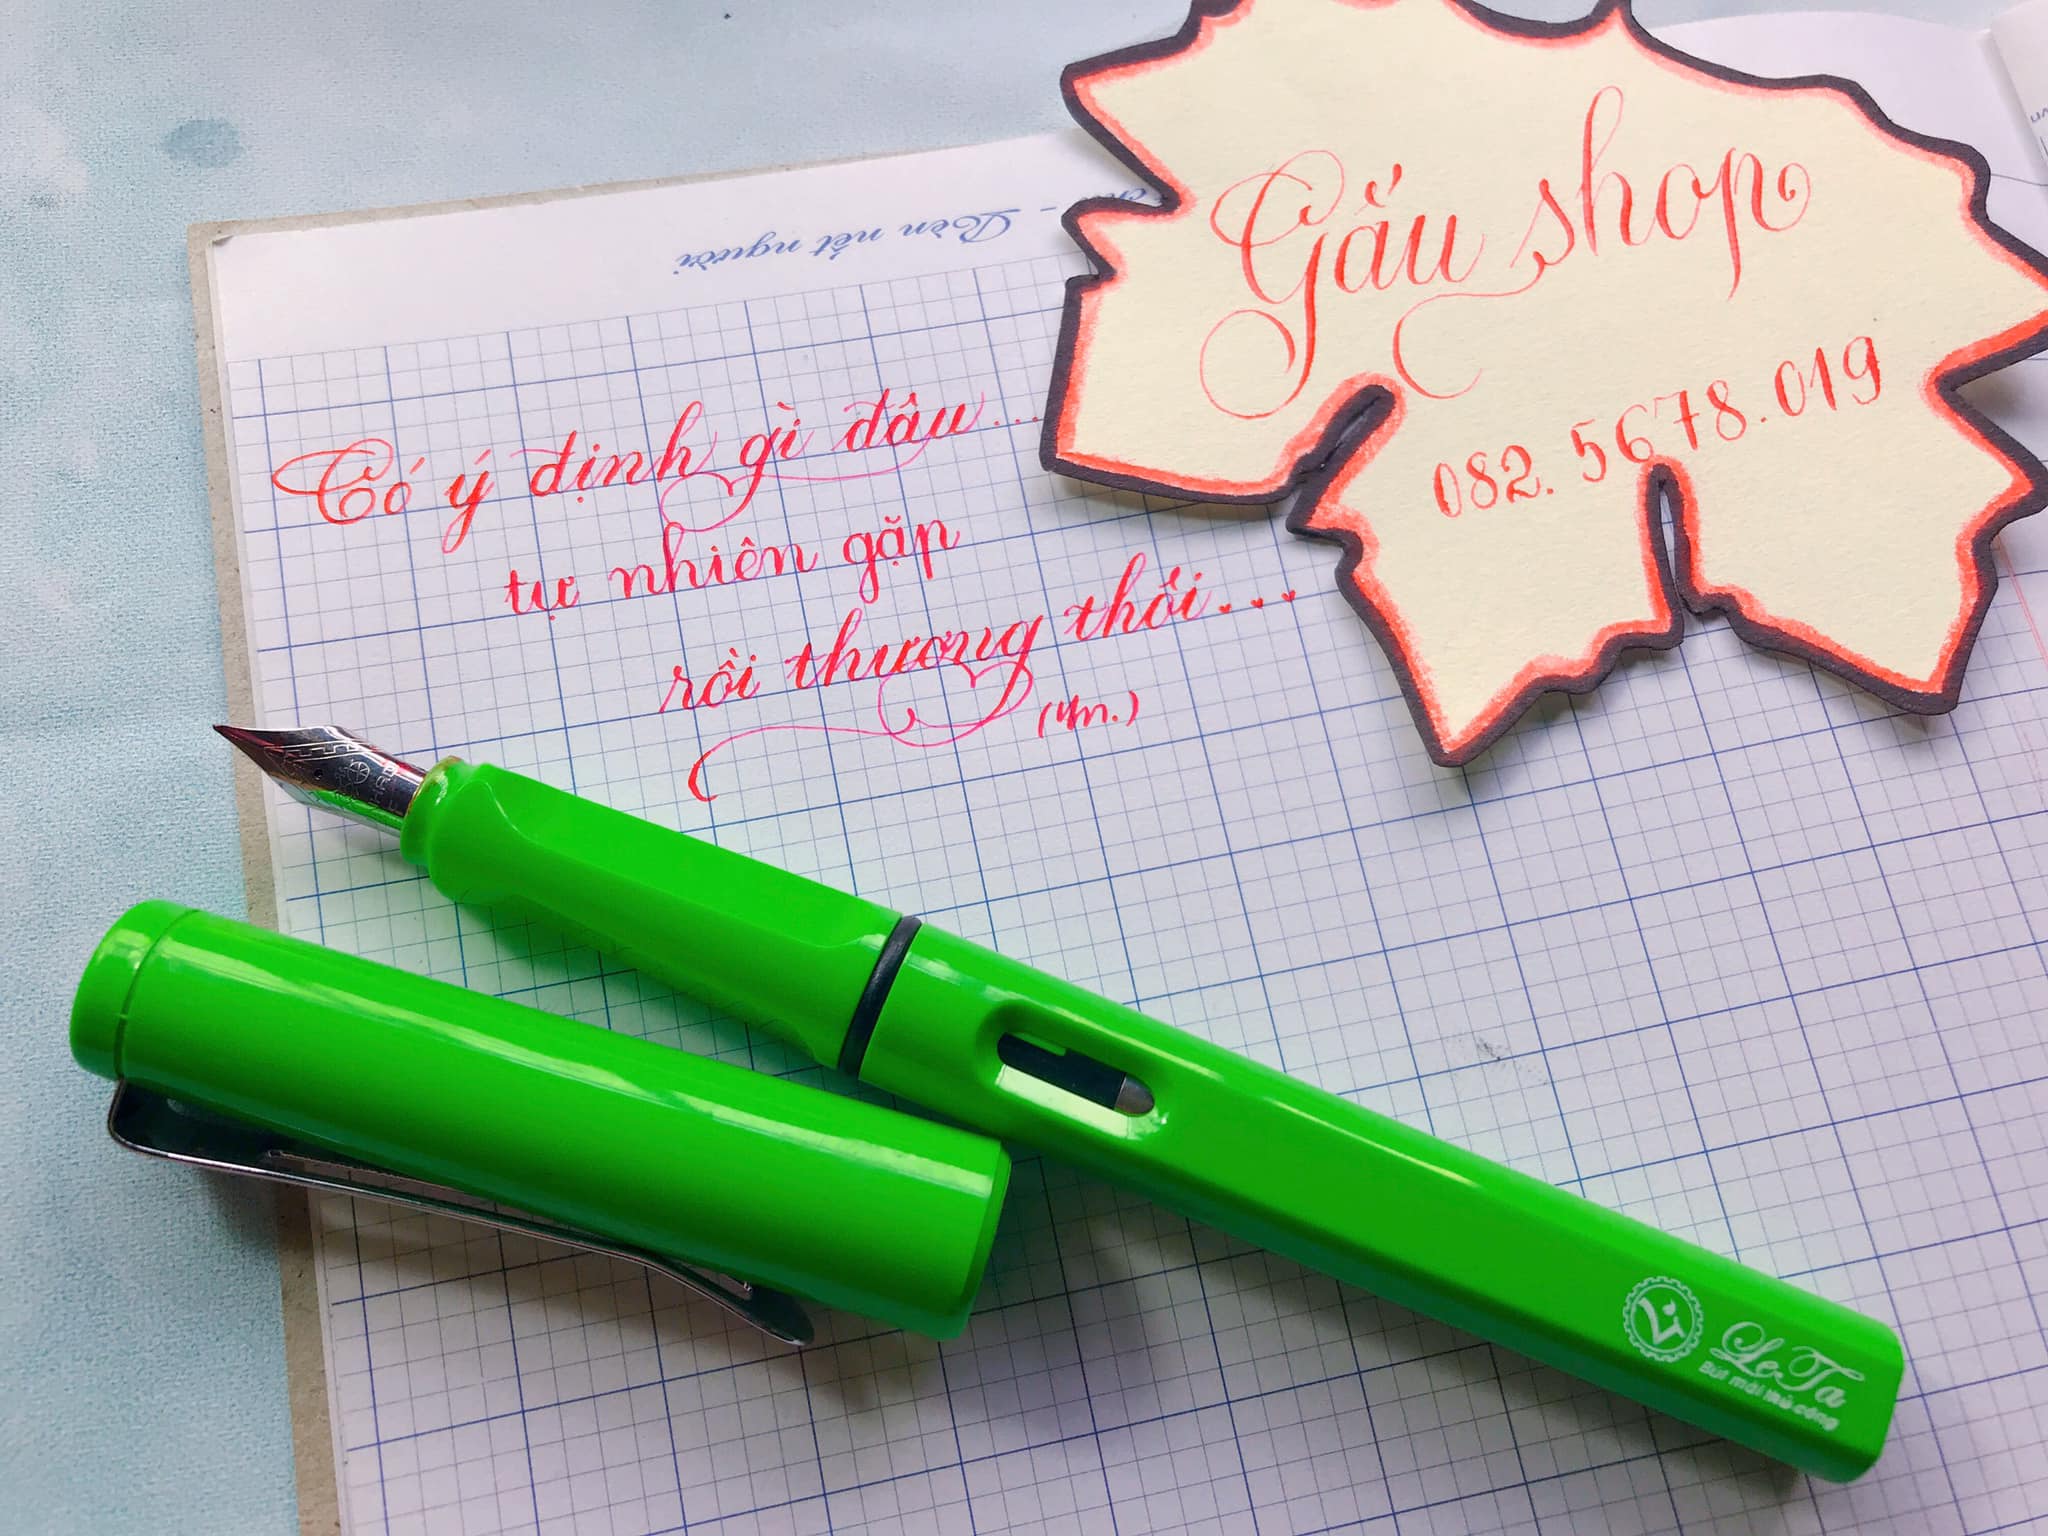 Rèn nết người
Gấu shop
082.5678.019
Có ý định gì đâu...
tự nhiên gặp
rồi thương thôi...
LeTa
Bút mài thủ công